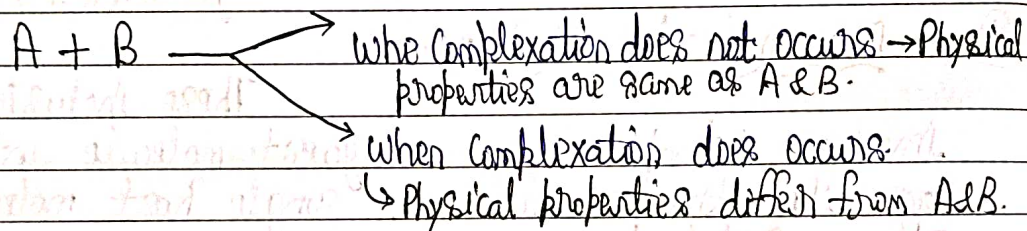 A + B → whe Complexation does not occurs → Physical
properties are same as A & B.
when Complexation does occurs.
↳ Physical properties differ from A & B.